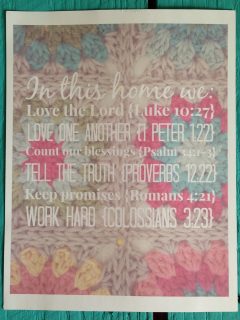 In this home we:
Love the Lord {Luke 10:27}
LOVE ONE ANOTHER {1 PETER 1:22}
Count our blessings {Psalm 34:1-3}
TELL THE TRUTH {PROVERBS 12:22}
Keep promises {Romans 4:21}
WORK HARD {COLOSSIANS 3:23}